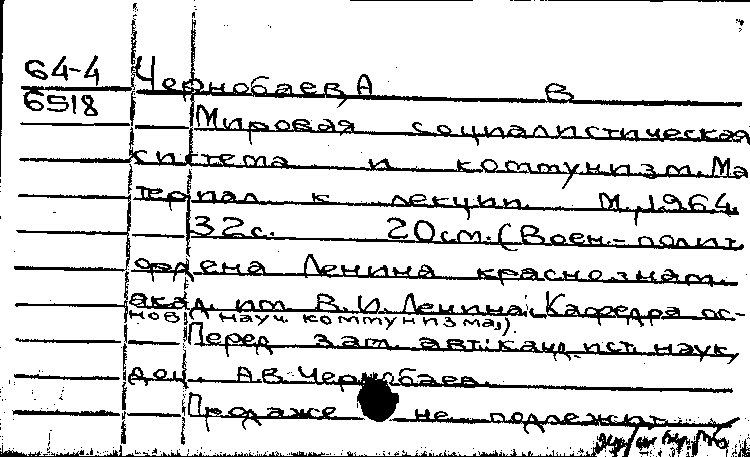 64-4 Чернобаев, А В
6518
Мировая социалистическая
система и коммунизм. Ма
териал к лекции. М., 1964.
32с. 20см. (Воен.-полит.
ордена Ленина краснознам.
акад. им. В.И. Ленина. Кафедра ос-
нов науч. коммунизма).
Перед загл. авт.: канд. ист. наук,
доц. А.В. Чернобаев.
Продаже не подлежит.